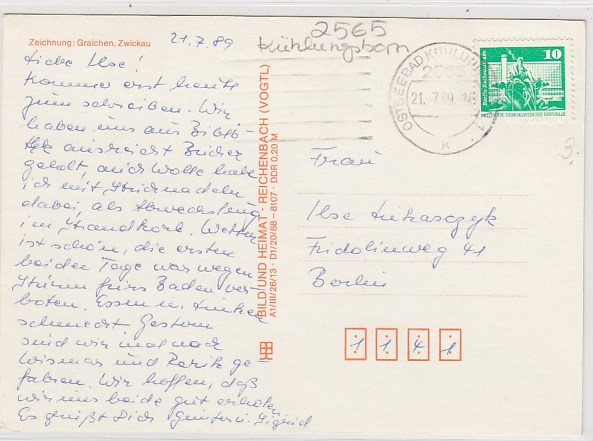 Zeichnung: Graichen, Zwickau
21.7.89
2565
Kühlungsborn
Liebe Ilse!
Komme erst heute
zum schreiben. Wir
haben uns aus Biblio-
thek ausreicht Bücher
geholt, auch Wolle habe
ich mit Stricknadeln
dabei, als Abwechslung
im Strandkorb. Wetter
ist schön, die ersten
beiden Tage war wegen
Sturm fürs Baden ver-
boten. Essen im
schmeckt. Gestern
sind wir mal nach
Wismar und Rerik ge-
fahren. Wir hoffen, daß
wir uns beide gut erholen.
Es grüßt Dich Günter u. Sigrid
BILD UND HEIMAT · REICHENBACH (VOGTL)
A1/III/26/13 · D1/20/88 – 8107 · DDR 0,20 M
OSTSEEBAD KÜHLUNGSBORN
2565
21.-7.89
K
10
DEUTSCHE DEMOKRATISCHE REPUBLIK
3.
Frau
Ilse Lukasczyk
Fridolinweg 41
Berlin
1 1 4 1